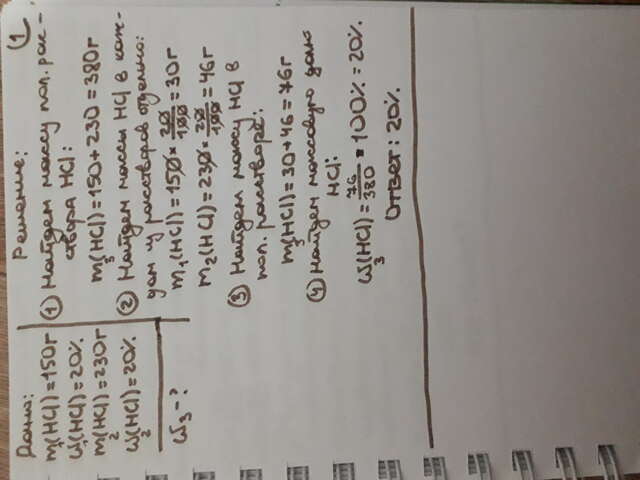 Дано:
m1(HCl)=150г
ω1(HCl)=20%
m2(HCl)=230г
ω2(HCl)=20%
ω3-?
Решение:
1
① Найдем массу пол. рас-
створа HCl:
m3(HCl)=150+230=380г
② Найдем массы HCl в каж-
дом из расстворов отдельно:
m1(HCl)=150*20/100=30г
m2(HCl)=230*20/100=46г
③ Найдем массу HCl в
пол. расстворе:
m3(HCl)=30+46=76г
④ Найдем массовую долю
HCl:
ω3(HCl)=76/380*100%=20%.
Ответ: 20%.